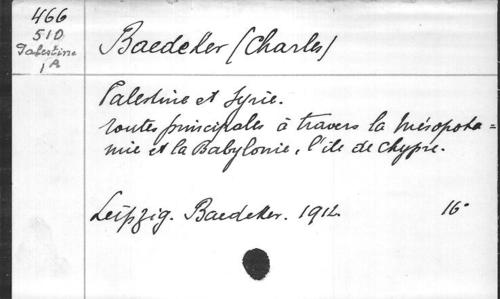 466
510
Palestine
1A
Baedeker (Charles)
Palestine et Syrie.
routes principales à travers la Mésopota=
mie et la Babylonie, l'île de Chypre.
Leipzig. Baedeker. 1912 16°